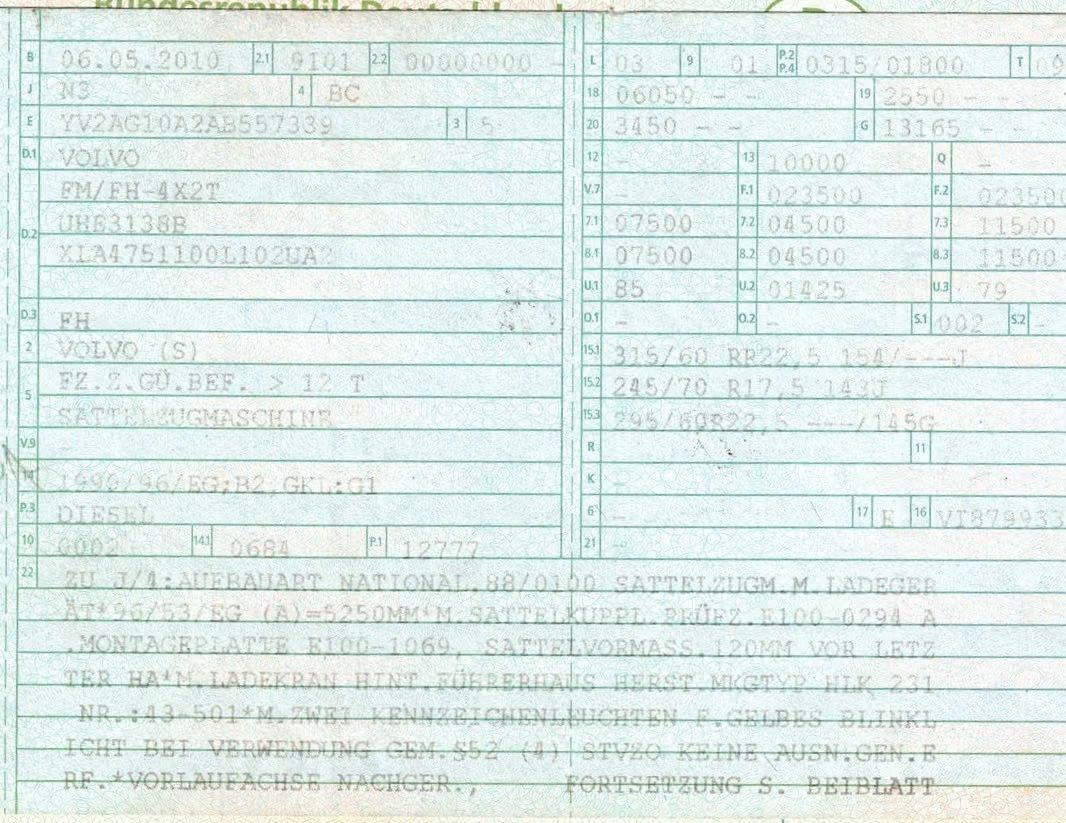 Bundesrepublik Deutschland
B 06.05.2010 2.1 9101 2.2 00000000 -
J N3 4 BC
E YV2AG10A2AB557339 3 5
D.1 VOLVO
FM/FH-4X2T
D.2 UHE3138B
XLA4751100L102UA2
D.3 FH
2 VOLVO (S)
5 FZ.Z.GÜ.BEF. > 12 T
SATTELZUGMASCHINE
V.9 -
14 1999/96/EG;B2,GKL:G1
P.3 DIESEL
10 0002 14.1 0684 P.1 12777
L 03 9 01 P.2 P.4 0315/01800 T 09
18 06050 - - 19 2550 - -
20 3450 - - G 13165 -
12 - 13 10000 Q -
V.7 - F.1 023500 F.2 023500
7.1 07500 7.2 04500 7.3 11500
8.1 07500 8.2 04500 8.3 11500
U.1 85 U.2 01425 U.3 79
O.1 - O.2 - S.1 002 S.2 -
15.1 315/60 RR22,5 154/---J
15.2 245/70 R17,5 143J
15.3 295/60R22,5 ---/145G
R 11
K -
6 - 17 E 16 VI879933
21 -
22 ZU J/4:AUFBAUART NATIONAL.88/0100 SATTELZUGM.M.LADEGER
ÄT*96/53/EG (A)=5250MM*M.SATTELKUPPL.PRÜFZ.E100-0294 A
.MONTAGEPLATTE E100-1069, SATTELVORMASS.120MM VOR LETZ
TER HA*M.LADEKRAN HINT.FÜHRERHAUS HERST.MKGTYP HLK 231
NR.:43-501*M.ZWEI KENNZEICHENLEUCHTEN F.GELBES BLINKL
ICHT BEI VERWENDUNG GEM.§52 (4) STVZO KEINE AUSN.GEN.E
RF.*VORLAUFACHSE NACHGER., FORTSETZUNG S. BEIBLATT